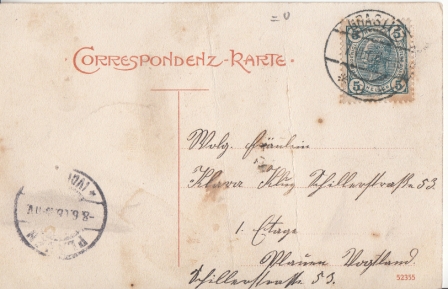 CORRESPONDENZ-KARTE.
5 5
5 5
Wolg. Fräulein
Klara Klug Schillerstraße 53.
1. Etage
Plauen Vogtland.
Schillerstraße 53.
52355